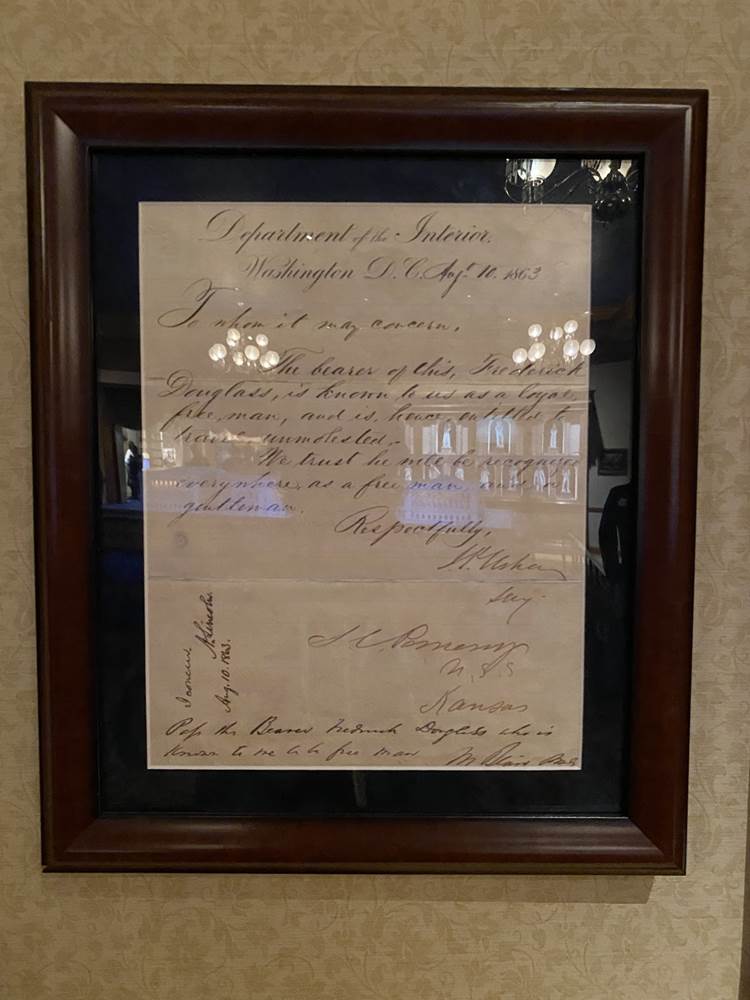 Department of the Interior.
Washington D.C. Augt. 10. 1863
To whom it may concern.
The bearer of this, Frederick
Douglass, is known to us as a loyal,
free, man, and is, hence, entitled to
travel unmolested.-
We trust he will be recognized
everywhere, as a free man, and a
gentleman.
Respectfully,
J.P. Usher
Secy.
I concur.
A. Lincoln.
Aug. 10. 1863.
S C. Pomeroy
U.S.S
Kansas
Pass the Bearer Frederick Douglass who is
known to me to be free man
M Blair